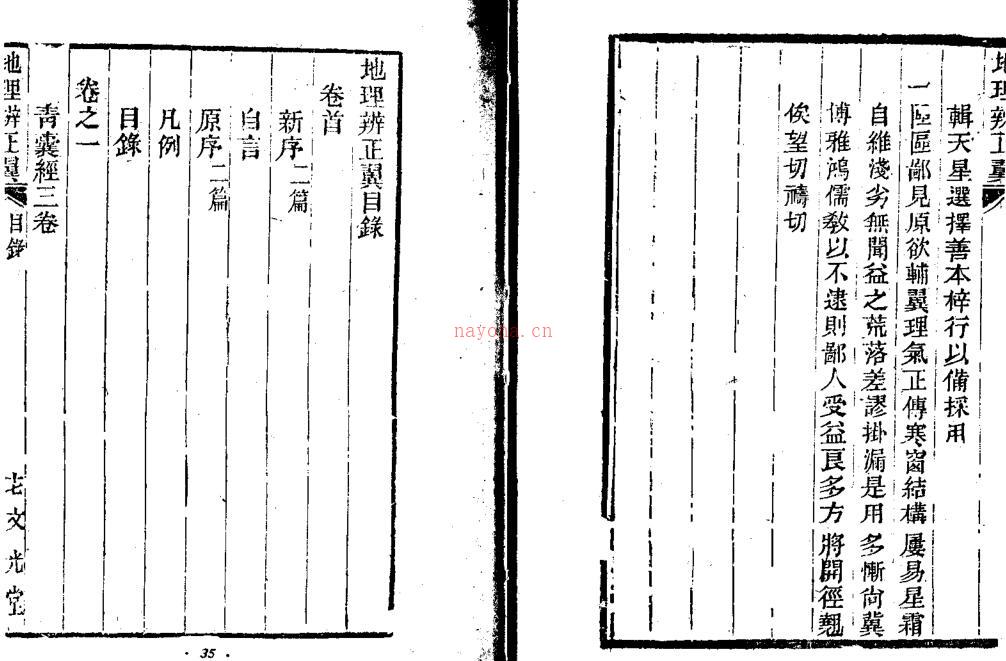 地理辨正翼
輯天星選擇善本梓行以備採用
一區區鄙見原欲輔翼理氣正傳寒窗結構屢易星霜
自維淺劣無聞益之荒落差謬掛漏是用多慚尚冀
博雅鴻儒教以不逮則鄙人受益良多方將開徑翹
俟望切禱切
地理辨正翼目錄
卷首
新序二篇
自言
原序二篇
凡例
目錄
卷之一
青囊經三卷
地理辨正翼
目錄
老文光堂
· 35 ·
nayona.cn